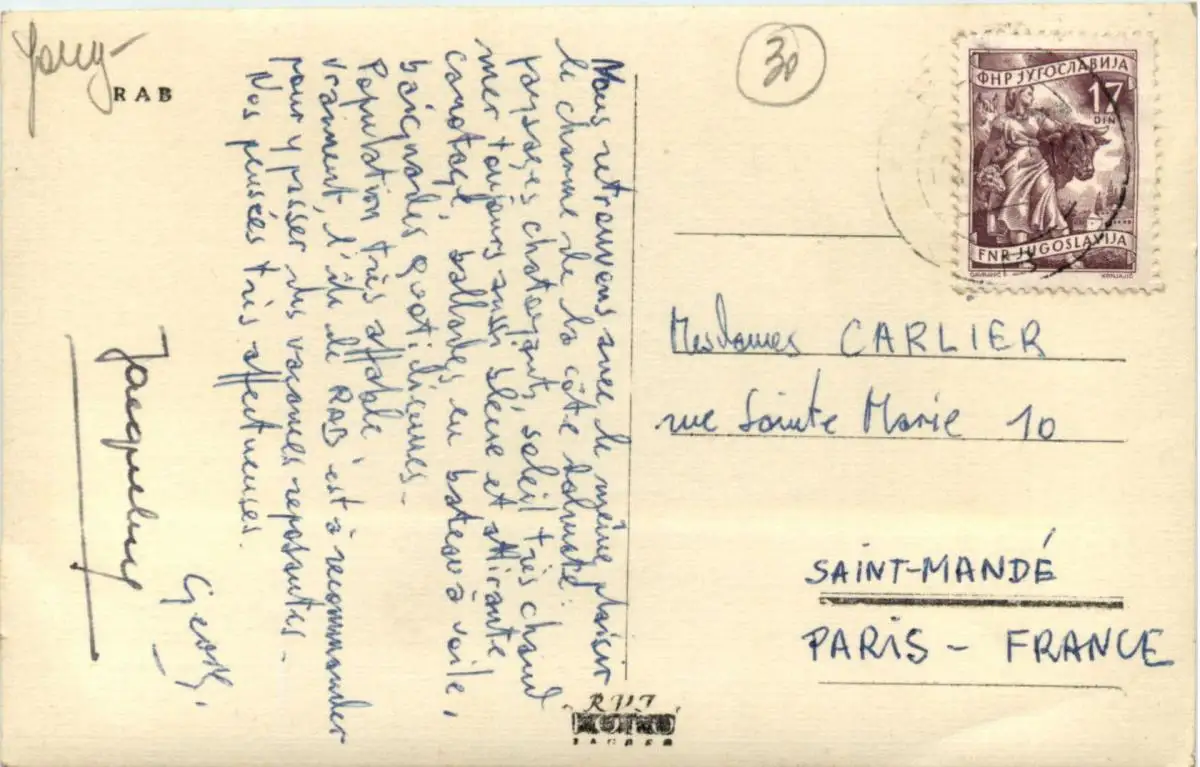 Joug-
RAB
30
ФНР ЈУГОСЛАВИЈА
17
DIN
FNR JUGOSLAVIJA
Nous retrouvons avec le même plaisir
le charme de la côte dalmate:
paysages chatoyants, soleil très chaud
mer toujours aussi bleue et attirante,
canotage, ballades en bateau à voile,
baignades quotidiennes -
Population très affable
vraiment, l'île de RAB est à recommander
pour y passer des vacances reposantes -
Nos pensées très affectueuses.
Jacqueline
Mesdames CARLIER
rue Sainte Marie 10
SAINT-MANDÉ
PARIS - FRANCE
ZAGREB